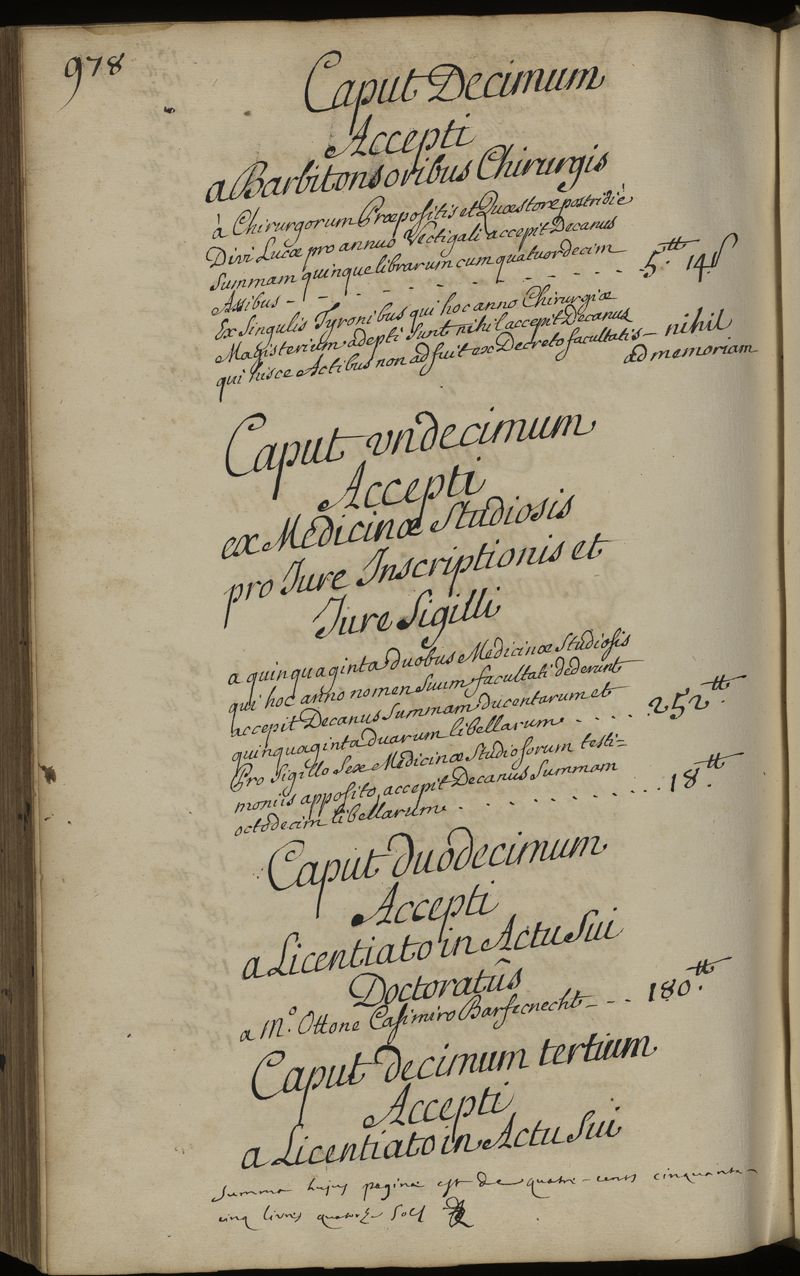 978
Caput Decimum
Accepti
a Barbitonsoribus Chirurgis
à Chirurgorum Præpositis et Quæstore postridiè
Divi Lucæ pro annuo Vectigali accepit Decanus
Summam quinque librarum cum quatuordecim
Assibus - - - - - - - - - - - - 5.tt 14.s
Ex Singulis Tyronibus qui hoc anno Chirurgiæ
Magisterium adepti Sunt nihil accepit Decanus
qui hisce Actibus non adfuit ex Decreto facultatis - nihil
ad memoriam
Caput vndecimum
Accepti
ex Medicinæ Studiosis
pro Jure Inscriptionis et
Jure Sigilli
a quinquaginta duobus Medicinæ Studiosis
qui hoc anno nomen Suum facultati dederunt
accepit Decanus Summam ducentarum et
quinquaginta duarum libellarum . . . . . 252.tt
Pro Sigillo Sex Medicinæ Studiosorum testi=
moniis apposito, accepit Decanus Summam
octodecim libellarum . . . . . . . . . . 18.tt
Caput duodecimum
Accepti
a Licentiato in Actu Sui
Doctoratûs
a M.o Ottone Casimiro Barfecnecht - - - 180.tt
Caput decimum tertium
Accepti
a Licentiato in Actu Sui
Summa hujus paginæ est de quatre-cents cinquante-
cinq livres quatorze Sols